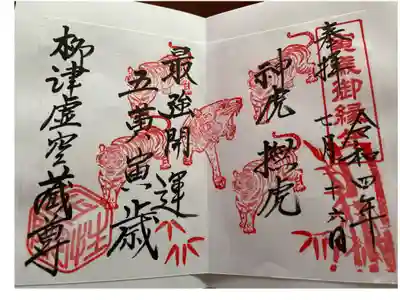 奉拝
寅歳御縁年
令和四年
七月二十六日
神虎撫虎
最強開運
五黄寅歳
柳津虚空蔵尊